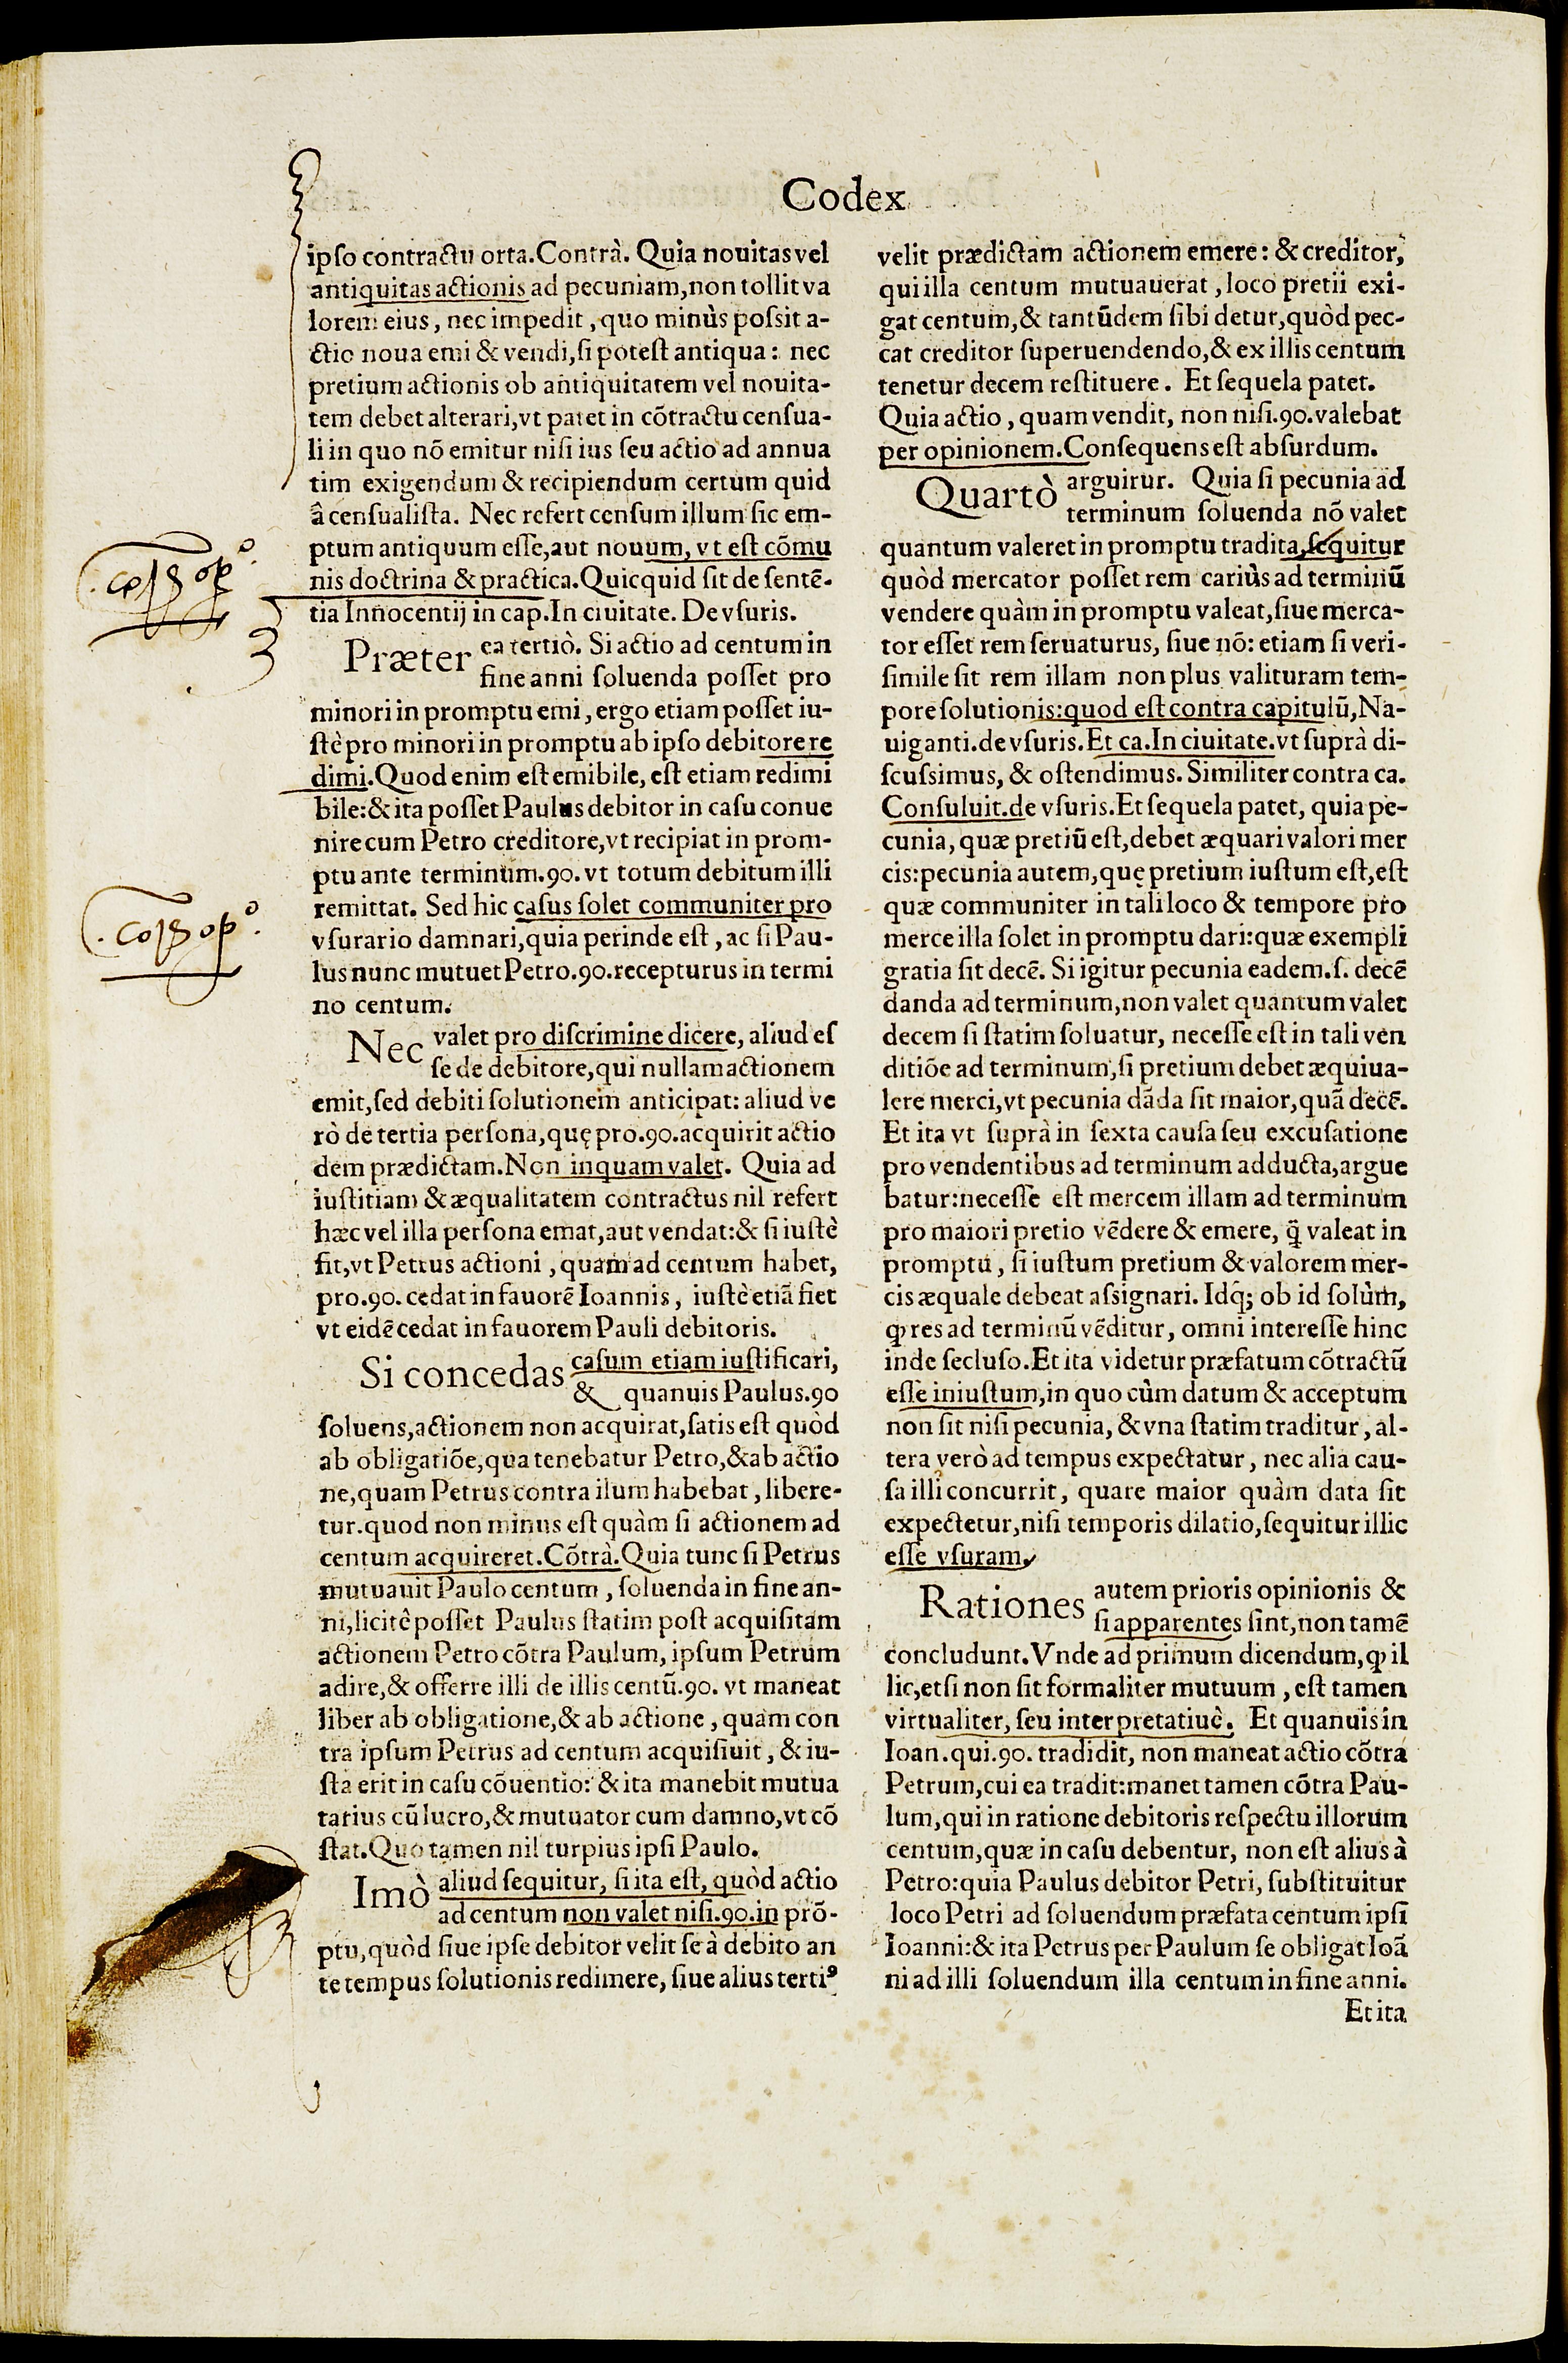 Codex
ipſo contractu orta. Contrà. Quia nouitas vel
antiquitas actionis ad pecuniam, non tollit va
lorem eius, nec impedit, quo minùs poſsit a-
ctio noua emi & vendi, ſi poteſt antiqua: nec
pretium actionis ob antiquitatem vel nouita-
tem debet alterari, vt patet in cõtractu cenſua-
li in quo nõ emitur niſi ius ſeu actio ad annua
tim exigendum & recipiendum certum quid
â cenſualiſta. Nec refert cenſum illum ſic em-
ptum antiquum eſſe, aut nouum, vt eſt cõmu
nis doctrina & practica. Quicquid ſit de ſentẽ-
tia Innocentij in cap. In ciuitate. De vſuris.
Præter ea tertiò. Si actio ad centum in
fine anni ſoluenda poſſet pro
minori in promptu emi, ergo etiam poſſet iu-
ſtè pro minori in promptu ab ipſo debitore re
dimi. Quod enim eſt emibile, eſt etiam redimi
bile: & ita poſſet Paulus debitor in caſu conue
nire cum Petro creditore, vt recipiat in prom-
ptu ante terminum. 90. vt totum debitum illi
remittat. Sed hic caſus ſolet communiter pro
vſurario damnari, quia perinde eſt, ac ſi Pau-
lus nunc mutuet Petro. 90. recepturus in termi
no centum.
Nec valet pro diſcrimine dicere, aliud eſ
ſe de debitore, qui nullam actionem
emit, ſed debiti ſolutionem anticipat: aliud ve
rò de tertia perſona, quę pro. 90. acquirit actio
dem prædictam. Non inquam valet. Quia ad
iuſtitiam & æqualitatem contractus nil refert
hæc vel illa perſona emat, aut vendat: & ſi iuſtè
fit, vt Petrus actioni, quam ad centum habet,
pro. 90. cedat in fauorẽ Ioannis, iuſtè etiã fiet
vt eidẽ cedat in fauorem Pauli debitoris.
Si concedas caſum etiam iuſtificari,
& quanuis Paulus. 90
ſoluens, actionem non acquirat, ſatis eſt quòd
ab obligatiõe, qua tenebatur Petro, & ab actio
ne, quam Petrus contra ilum habebat, libere-
tur. quod non minus eſt quàm ſi actionem ad
centum acquireret. Cõtrà. Quia tunc ſi Petrus
mutuauit Paulo centum, ſoluenda in fine an-
ni, licitê poſſet Paulus ſtatim poſt acquiſitam
actionem Petro cõtra Paulum, ipſum Petrum
adire, & offerre illi de illis centũ. 90. vt maneat
liber ab obligatione, & ab actione, quam con
tra ipſum Petrus ad centum acquiſiuit, & iu-
ſta erit in caſu cõuentio: & ita manebit mutua
tarius cũ lucro, & mutuator cum damno, vt cõ
ſtat. Quo tamen nil turpius ipſi Paulo.
Imò aliud ſequitur, ſi ita eſt, quòd actio
ad centum non valet niſi. 90. in prõ-
ptu, quòd ſiue ipſe debitor velit ſe à debito an
te tempus ſolutionis redimere, ſiue alius tertiꝰ
velit prædictam actionem emere: & creditor,
qui illa centum mutuauerat, loco pretii exi-
gat centum, & tantũdem ſibi detur, quòd pec-
cat creditor ſuperuendendo, & ex illis centum
tenetur decem reſtituere. Et ſequela patet.
Quia actio, quam vendit, non niſi. 90. valebat
per opinionem. Conſequens eſt abſurdum.
Quartò arguirur. Quia ſi pecunia ad
terminum ſoluenda nõ valet
quantum valeret in promptu tradita, ſequitur
quòd mercator poſſet rem cariùs ad terminũ
vendere quàm in promptu valeat, ſiue merca-
tor eſſet rem ſeruaturus, ſiue nõ: etiam ſi veri-
ſimile ſit rem illam non plus valituram tem-
pore ſolutionis: quod eſt contra capitulũ, Na-
uiganti. de vſuris. Et ca. In ciuitate. vt ſuprà di-
ſcuſsimus, & oſtendimus. Similiter contra ca.
Conſuluit. de vſuris. Et ſequela patet, quia pe-
cunia, quæ pretiũ eſt, debet æquari valori mer
cis: pecunia autem, quę pretium iuſtum eſt, eſt
quæ communiter in tali loco & tempore pro
merce illa ſolet in promptu dari: quæ exempli
gratia ſit decẽ. Si igitur pecunia eadem. ſ. decẽ
danda ad terminum, non valet quantum valet
decem ſi ſtatim ſoluatur, neceſſe eſt in tali ven
ditiõe ad terminum, ſi pretium debet æquiua-
lere merci, vt pecunia dãda ſit maior, quã decẽ.
Et ita vt ſuprà in ſexta cauſa ſeu excuſatione
pro vendentibus ad terminum adducta, argue
batur: neceſſe eſt mercem illam ad terminum
pro maiori pretio vẽdere & emere, q̃ valeat in
promptu, ſi iuſtum pretium & valorem mer-
cis æquale debeat aſsignari. Idq; ob id ſolùm,
ꝙ res ad terminũ vẽditur, omni intereſſe hinc
inde ſecluſo. Et ita videtur præfatum cõtractũ
eſſe iniuſtum, in quo cùm datum & acceptum
non ſit niſi pecunia, & vna ſtatim traditur, al-
tera verò ad tempus expectatur, nec alia cau-
ſa illi concurrit, quare maior quàm data ſit
expectetur, niſi temporis dilatio, ſequitur illic
eſſe vſuram.
Rationes autem prioris opinionis &
ſi apparentes ſint, non tamẽ
concludunt. Vnde ad primum dicendum, ꝙ il
lic, et ſi non ſit formaliter mutuum, eſt tamen
virtualiter, ſeu interpretatiuè. Et quanuis in
Ioan. qui. 90. tradidit, non maneat actio cõtra
Petrum, cui ea tradit: manet tamen cõtra Pau-
lum, qui in ratione debitoris reſpectu illorum
centum, quæ in caſu debentur, non eſt alius à
Petro: quia Paulus debitor Petri, ſubſtituitur
loco Petri ad ſoluendum præfata centum ipſi
Ioanni: & ita Petrus per Paulum ſe obligat Ioã
ni ad illi ſoluendum illa centum in fine anni.
Et ita